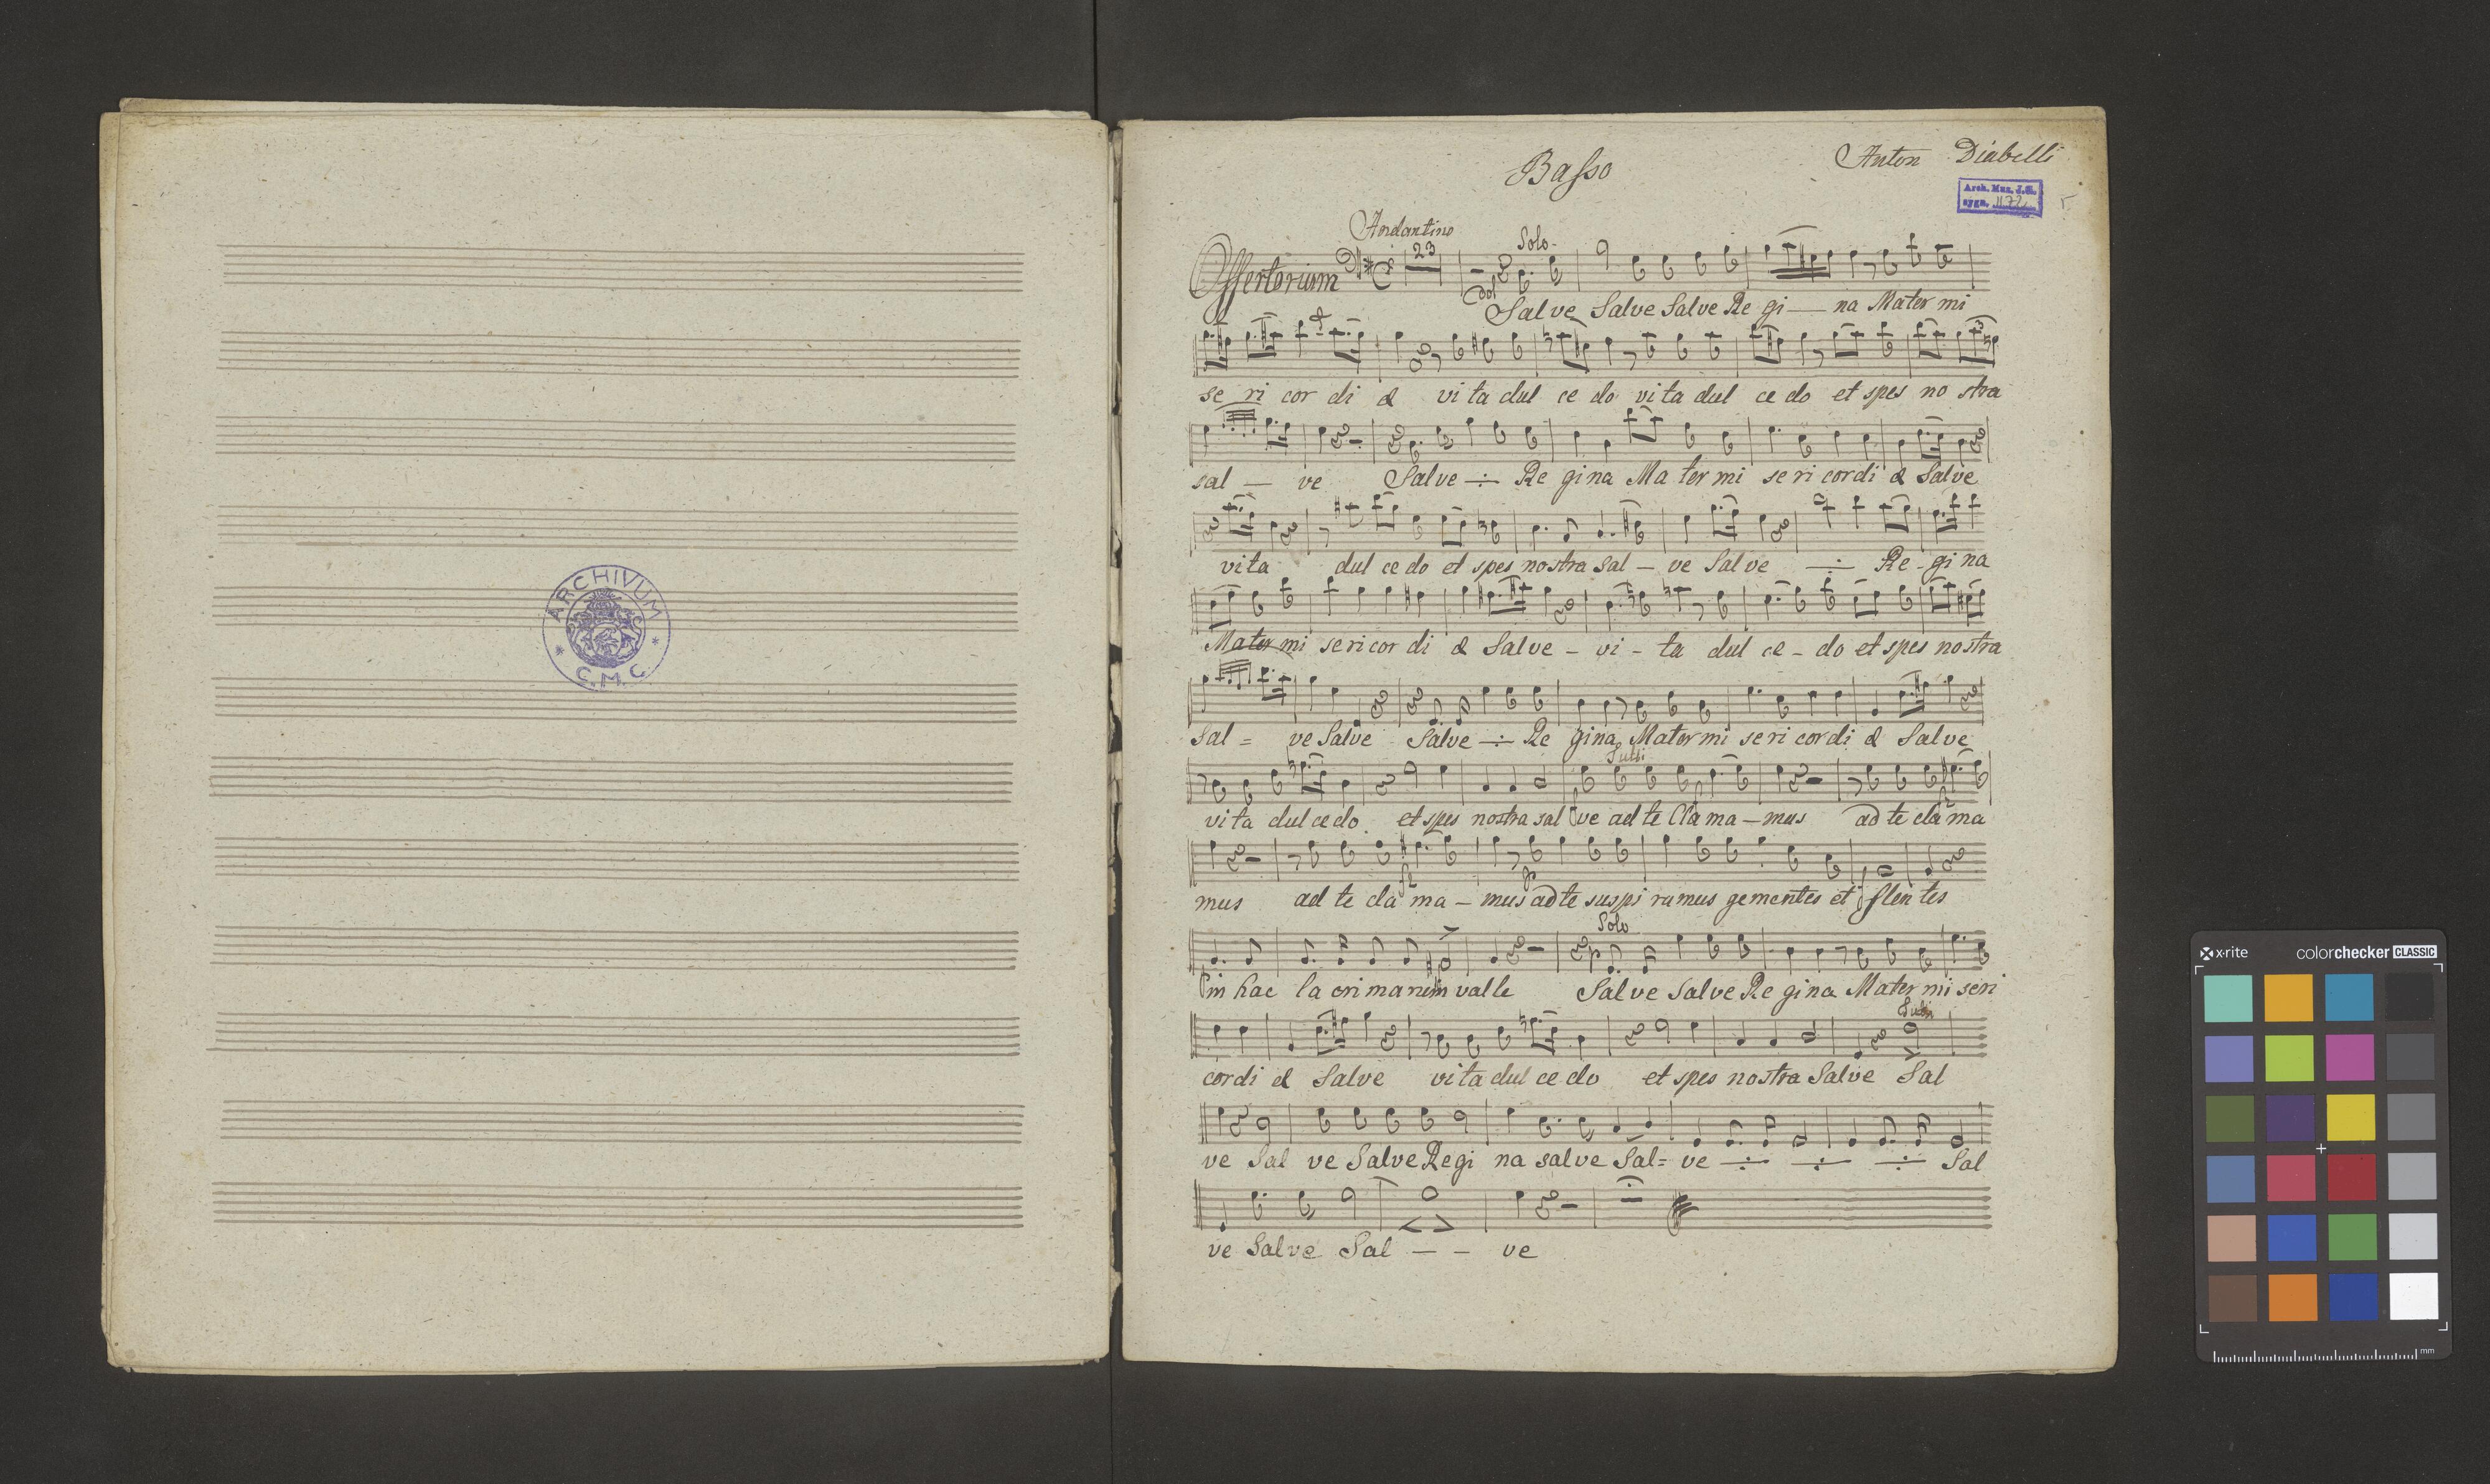 ARCHIVUM
C. M. C.
Basso
Anton Diabelli
Arch. Muz. J. G.
sygn. 1172
Andantino
Offertorium 23 Solo
dol
Salve Salve Salve Re gi — na Mater mi
se ri cor di æ vi ta dul ce do vi ta dul ce do et spes no stra
sal — ve Salve ·/· Re gi na Ma ter mi se ri cor di æ Salve
vita dul ce do et spes nostra sal — ve Salve ·/· Re - gi na
Mater mi se ri cor di æ Salve - vi - ta dul ce - do et spes nostra
Sal = ve Salve Salve ·/· Re gina Mater mi se ri cor di æ Salve
Tutti
vi ta dul ce do et spes nostra sal ve ad te Cla ma — mus ad te cla ma
mus ad te cla ma — mus ad te suspi ramus gementes et flen tes
Solo
in hac la cri marum valle Salve Salve Re gina Mater mi seri
Tutti
cordi æ Salve vi ta dul ce do et spes nostra Salve Sal
ve Sal ve Salve Regi na salve Sal = ve ·/· ·/· ·/· Sal
ve Salve Sal — — ve
x·rite colorchecker CLASSIC
mm